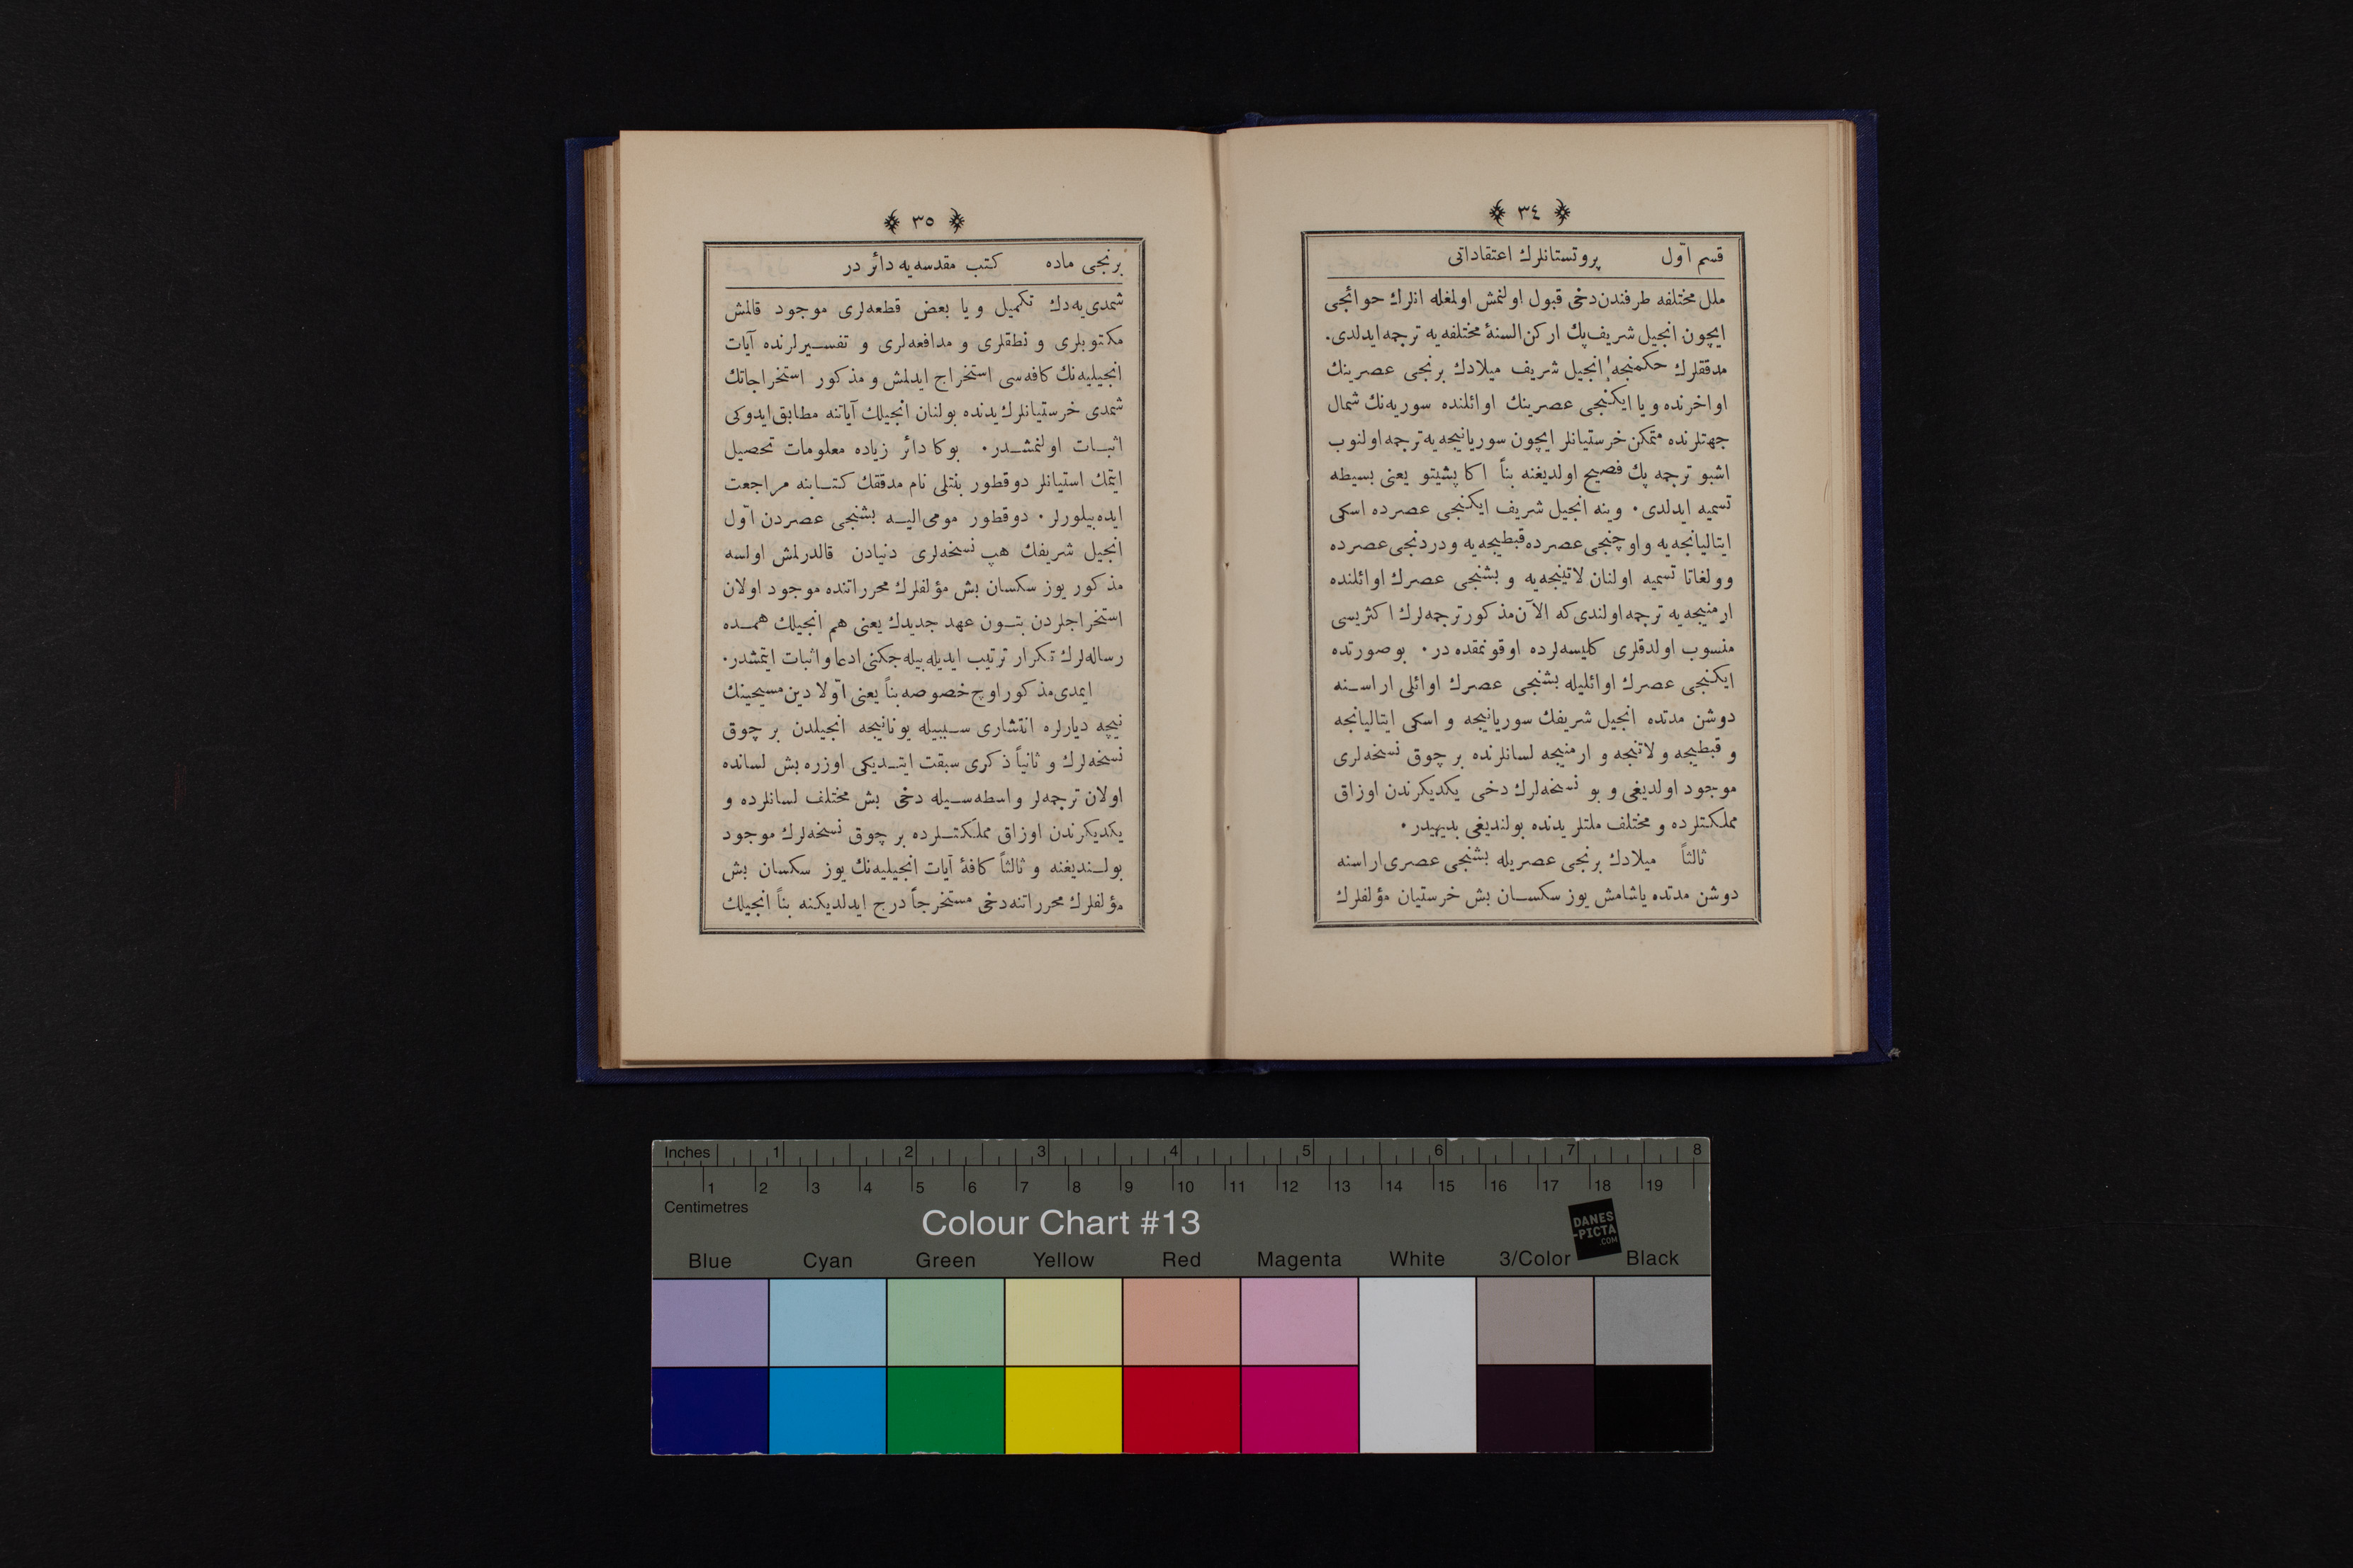 ﴿ ٣٤ ﴾
قسم اوّل پروتستانلرك اعتقاداتى
ملل مختلفه طرفندن دخى قبول اولنمش اولمغله انلرك حوائجى
ايچون انجيل شريف پك اركن السنۀ مختلفه يه ترجمه ايدلدى.
مدققلرك حكمنجه انجيل شريف ميلادك برنجى عصرينك
اواخرنده ويا ايكنجى عصرينك اوائلنده سوريه نك شمال
جهتلرنده متمكن خرستيانلر ايچون سوريانيجه يه ترجمه اولنوب
اشبو ترجمه پك فصيح اولديغنه بناً اكا پشيتو يعنى بسيطه
تسميه ايدلدى. وينه انجيل شريف ايكنجى عصرده اسكى
ايتاليانجه يه و اوچنجى عصرده قبطيجه يه ودردنجى عصرده
وولغاتا تسميه اولنان لاتينجه يه و بشنجى عصرك اوائلنده
ارمنيجه يه ترجمه اولندى كه الآن مذكور ترجمه لرك اكثريسى
منسوب اولدقلرى كليسه لرده اوقونمقده در. بوصورتده
ايكنجى عصرك اوائليله بشنجى عصرك اوائلى اراسنه
دوشن مدتده انجيل شريفك سوريانيجه و اسكى ايتاليانجه
و قبطيجه و لاتنجه و ارمنيجه لسانلرنده بر چوق نسخه لرى
موجود اولديغى و بو نسخه لرك دخى يكديكرندن اوزاق
مملكتلرده و مختلف ملتلر يدنده بولنديغى بديهيدر.
ثالثاً ميلادك برنجى عصريله بشنجى عصرى اراسنه
دوشن مدتده ياشامش يوز سكسان بش خرستيان مؤلفلرك
﴿ ٣٥ ﴾
برنجى ماده كتب مقدسه يه دائر در
شمدى يه دك تكميل ويا بعض قطعه لرى موجود قالمش
مكتوبلرى و نطقلرى و مدافعه لرى و تفسيرلرنده آيات
انجيليه نك كافه سى استخراج ايدلمش و مذكور استخراجاتك
شمدى خرستيانلرك يدنده بولنان انجيلك آياتنه مطابق ايدوكى
اثبات اولنمشدر. بوكا دائر زياده معلومات تحصيل
ايتمك استيانلر دوقطور بنتلى نام مدققك كتابنه مراجعت
ايده بيلورلر. دوقطور مومى اليه بشنجى عصردن اوّل
انجيل شريفك هپ نسخه لرى دنيادن قالدرلمش اولسه
مذكور يوز سكسان بش مؤلفلرك محرراتنده موجود اولان
استخراجلردن بتون عهد جديدك يعنى هم انجيلك همده
رساله لرك تكرار ترتيب ايديله بيله جكنى ادعا و اثبات ايتمشدر.
ايمدى مذكور اوچ خصوصه بناً يعنى اوّلا دين مسيحينك
نيچه ديارلره انتشارى سببيله يونانيجه انجيلدن بر چوق
نسخه لرك و ثانياً ذكرى سبقت ايتديكى اوزره بش لسانده
اولان ترجمه لر واسطه سيله دخى بش مختلف لسانلرده و
يكديكرندن اوزاق مملكتلرده بر چوق نسخه لرك موجود
بولنديغنه و ثالثاً كافۀ آيات انجيليه نك يوز سكسان بش
مؤلفلرك محرراتنه دخى مستخرجاً درج ايدلديكنه بناً انجيلك
Inches 1 2 3 4 5 6 7 8
1 2 3 4 5 6 7 8 9 10 11 12 13 14 15 16 17 18 19
Centimetres
Colour Chart #13
DANES
-PICTA
.COM
Blue Cyan Green Yellow Red Magenta White 3/Color Black